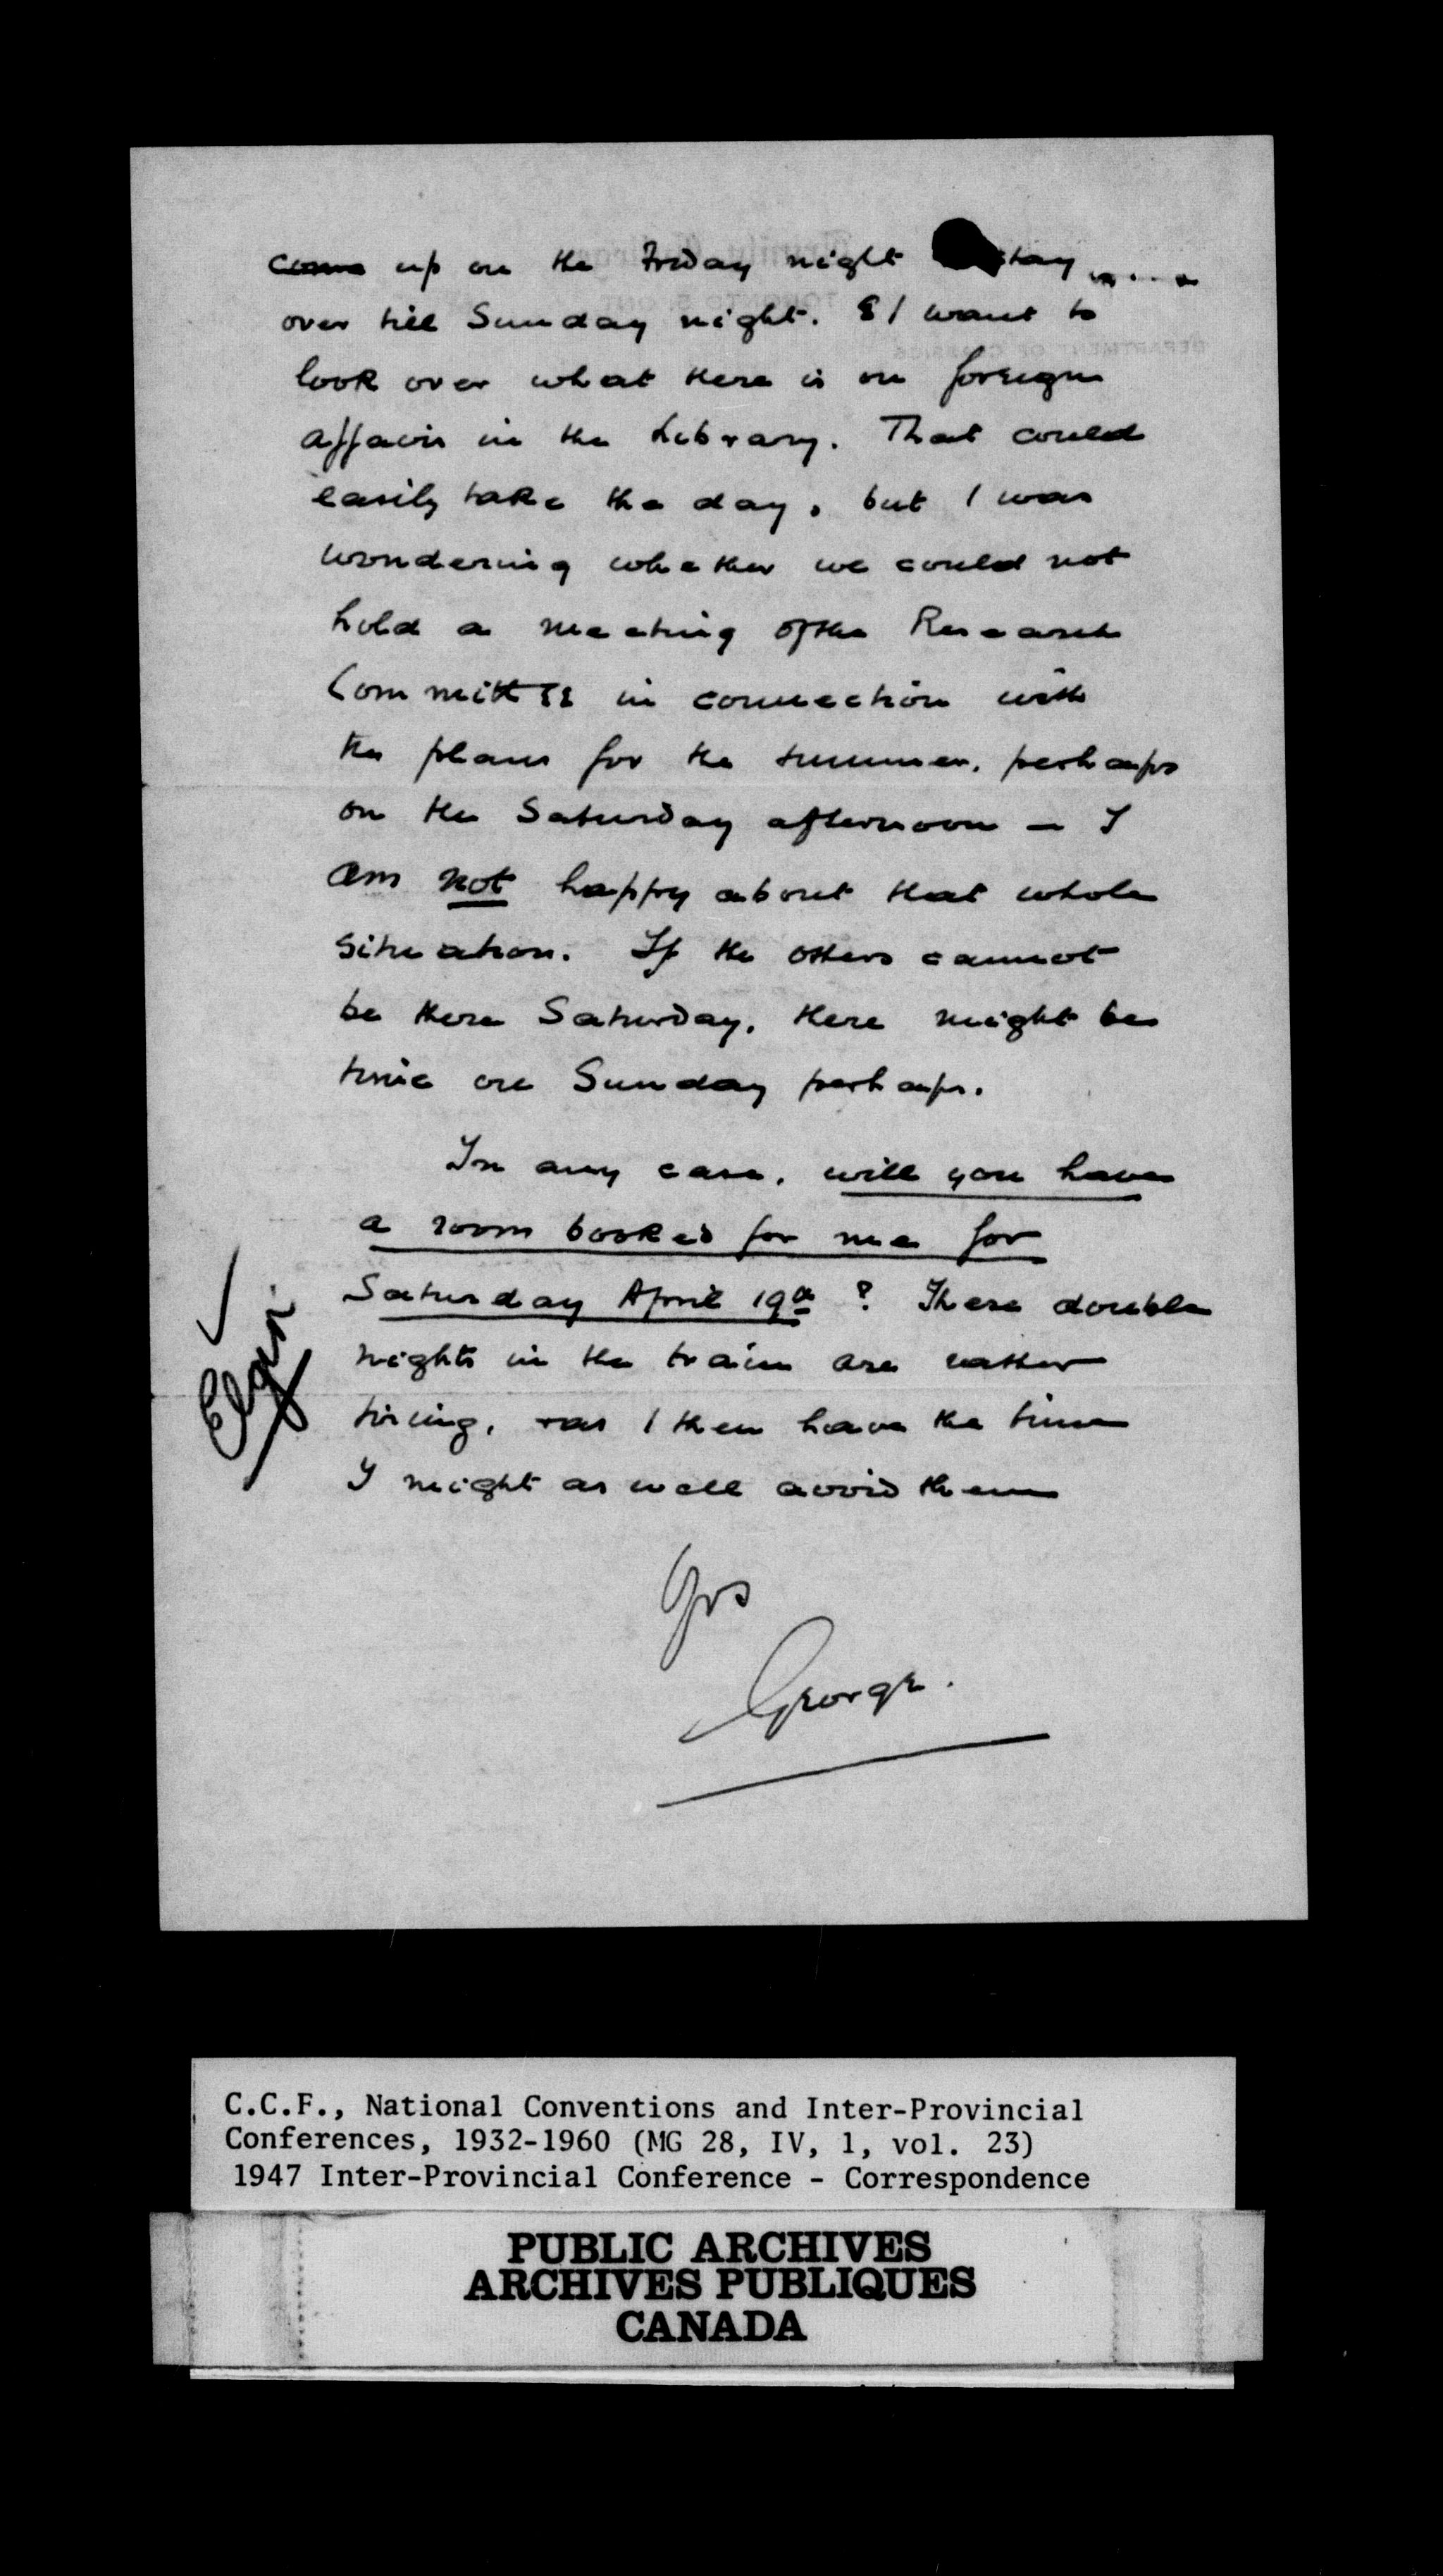 come up on the Friday night stay
over till Sunday night. & I want to
look over what there is on foreign
affairs in the Library. That could
easily take the day, but I was
wondering whether we could not
hold a meeting of the Research
Committee in connection with
the plans for the summer, perhaps
on the Saturday afternoon — I
am not happy about that whole
situation. If the others cannot
be there Saturday, there might be
time on Sunday perhaps.
In any case, will you have
a room booked for me for
Saturday April 19th ? These double
nights in the train are rather
tiring, & as I then have the time
I might as well avoid them
Yrs
George.
Elgin
C.C.F., National Conventions and Inter-Provincial
Conferences, 1932-1960 (MG 28, IV, 1, vol. 23)
1947 Inter-Provincial Conference - Correspondence
PUBLIC ARCHIVES
ARCHIVES PUBLIQUES
CANADA